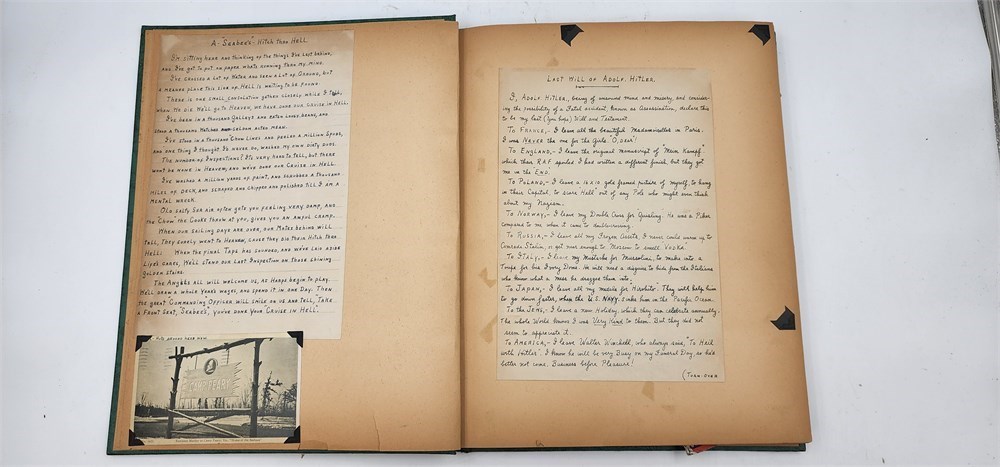 A "Seabee's" Hitch thru Hell
I'm sitting here and thinking of the things I've left behind,
and I've got to put on paper whats running thru my mind.
I've crossed a lot of Water and seen a lot of Ground, but
a meaner place this side of Hell is waiting to be found.
There is one small consolation gather closely while I tell,
when we die we'll go to Heaven, we have done our Cruise in Hell.
I've been in a thousand Galleys and eaten loves beans, and
stood a thousand Watches seldom after mean.
I've stood in a thousand Chow Lines and peeled a million Spuds,
and one thing I thought I'd never do, washed my own dirty duds.
The number of Inspections I its very hard to tell, but there
wont be none in Heaven, and we've done our Cruise in Hell.
I've washed a million yards of paint, and scrubbed a thousand
miles of Deck, and scraped and chipped and polished till I am a
mental wreck.
Old salty Sea air often gets you feeling very damp, and
the "Chow" the Cooks throw at you, gives you an awful cramp.
When our sailing days are over, our Mates behind will
tell, They surely went to Heaven, cause they did their Hitch thru
Hell. When the final Taps has sounded, and we've laid aside
Life's cares, We'll stand our Last Inspection on those shining
Golden Stairs.
The Angels all will welcome us, as Harps begin to play.
We'll draw a whole Years wages, and spend it in one Day. Then
the great "Commanding" Officer will smile on us and tell, Take
a Front Seat, Seabees, you've done your Cruise in Hell.
CAMP PEARY
Last Will of Adolf Hitler.
I, Adolf Hitler, being of unsound mind and misery, and consider-
ing the possibility of a Fatal accident, known as Assassination, declare this
to be my last (you hope) Will and Testament.
To France,- I leave all the beautiful Mademoiselles in Paris.
I was Never the one for the Girls "O, dear!
To England,- I leave the original manuscript of "Mein Kampf"
which their R.A.F. spoiled. I had written a different finish, but they got
me in the End.
To Poland,- I leave a gold framed picture of myself, to hang
in their Capital, to scare "Hell" out of any Pole who might even think
about my Nazism.
To Norway,- I leave my Double Cross for "Quisling". He was a Piker
compared to me when it came to doublecrossing.
To Russia,- I leave all my Frozen Assets, I never could warm up to
Comrade Stalin, or get near enough to Moscow to smell Vodka.
To Italy,- I leave my Mustache for Mussolini, to make into a
Toupe for his Ivory Dome. He will need a disguise to hide from the Italians
who know what a mess he dragged them into.
To Japan,- I leave all my medals for Hirohito. They will help him
to go down faster, when the U.S. NAVY. sinks him in the Pacific Ocean.
To the Jews,- I leave a new Holiday, which they can celebrate annually.
The whole World knows I was Very Kind to them. But they did not
seem to appreciate it.
To America,- I leave Walter Winchell, who always said, "To Hell
with Hitler". I know he will be very Busy on my Funeral Day, so he'd
better not come. Business before Pleasure!
(Turn over